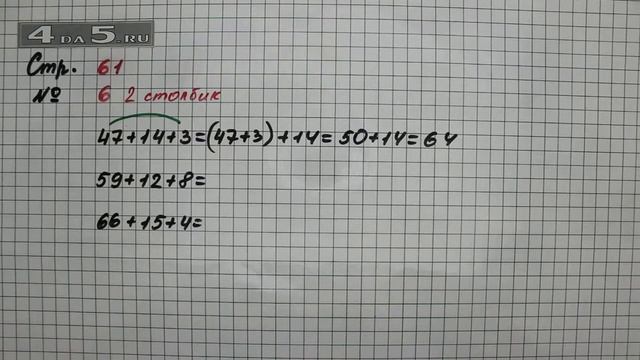 4 DA 5.RU
Стр. 61
№ 6 2 столбик
47+14+3=(47+3)+14=50+14=64
59+12+8=
66+15+4=